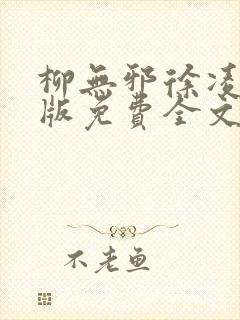 柳無邪徐凌
版免費全文
不老魚